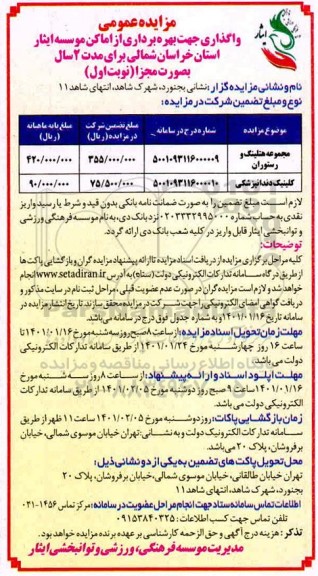 مزایده عمومی
واگذاری جهت بهره برداری از اماکن موسسه ایثار
استان خراسان شمالی برای مدت ۲ سال
بصورت مجزا (نوبت اول)
ایثار
نام و نشانی مزایده گزار: نشانی بجنورد، شهرک شاهد، انتهای شاهد۱۱
نوع و مبلغ تضمین شرکت در مزایده:
موضوع مزایده | شماره درج در سامانه | مبلغ تضمین شرکت در مزایده (ریال) | مبلغ پایه ماهیانه (ریال)
مجموعه هتلینگ و رستوران | ۵۰۰۱۰۹۳۱۱۶۰۰۰۰۰۹ | ۳۵۵/۰۰۰/۰۰۰ | ۴۲۰/۰۰۰/۰۰۰
کلینیک دندانپزشکی | ۵۰۰۱۰۹۳۱۱۶۰۰۰۰۱۰ | ۷۵/۵۰۰/۰۰۰ | ۹۰/۰۰۰/۰۰۰
لازم است مبلغ تضمین را به صورت ضمانت نامه بانکی بدون قید و شرط یا رسید واریز
نقدی به حساب شماره ۰۲۰۳۳۳۲۹۹۵۰۰۰ نزد بانک دی، به نام موسسه فرهنگی ورزشی
و توانبخشی ایثار قابل واریز در کلیه شعب بانک دی ارائه گردد.
توضیحات:
کلیه مراحل برگزاری مزایده از دریافت اسناد مزایده تا ارائه پیشنهاد مزایده گران و بازگشایی پاکت ها
از طریق درگاه سامانه تدارکات الکترونیکی دولت (ستاد) به آدرس www.setadiran.ir انجام
خواهد شد و لازم است مزایده گران در صورت عدم عضویت قبلی، مراحل ثبت نام در سایت مذکور و
دریافت گواهی امضای الکترونیکی را جهت شرکت در مزایده محقق سازند. تاریخ انتشار مزایده در
سامانه تاریخ ۱۴۰۱/۰۱/۱۶ و به شماره جدول فوق درج در سامانه می باشد.
مهلت زمان تحویل اسناد مزایده: از ساعت ۸ صبح روز سه شنبه مورخ ۱۴۰۱/۰۱/۱۶ تا
ساعت ۱۶ روز چهارشنبه مورخ ۱۴۰۱/۰۱/۲۴ از طریق سامانه تدارکات الکترونیکی
دولت می باشد.
مهلت آپلود اسناد و ارائه پیشنهاد: از ساعت ۸ روز سه شنبه مورخ
۱۴۰۱/۰۱/۱۶ تا ساعت ۱۰ صبح روز دوشنبه مورخ ۱۴۰۱/۰۲/۰۵ از طریق سامانه تدارکات
الکترونیکی دولت می باشد.
زمان بازگشایی پاکات: روز دوشنبه مورخ ۱۴۰۱/۰۲/۰۵ ساعت ۱۱ ظهر از طریق
سامانه تدارکات الکترونیک دولت و به نشانی: تهران خیابان موسوی شمالی، خیابان
برفروشان، پلاک ۲۰ می باشد.
محل تحویل پاکت های تضمین به یکی از دو نشانی ذیل:
تهران خیابان طالقانی، خیابان موسوی شمالی، خیابان برفروشان، پلاک ۲۰
بجنورد، شهرک شاهد، انتهای شاهد ۱۱
اطلاعات تماس سامانه ستاد جهت انجام مراحل عضویت در سامانه: مرکز تماس ۱۴۵۶-۰۲۱
تلفن تماس جهت کسب اطلاعات: ۰۹۱۵۳۸۴۰۳۲۵
تذکر: هزینه درج آگهی و حق الزحمه کارشناسی بر عهده برنده مزایده خواهد بود.
مدیریت موسسه فرهنگی، ورزشی و توانبخشی ایثار